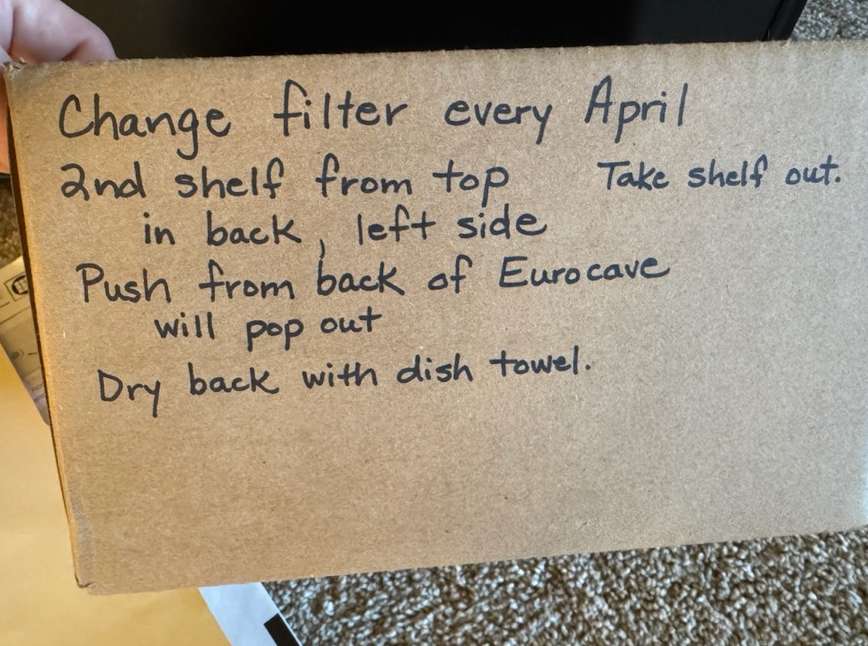 Change filter every April
2nd shelf from top Take shelf out.
in back, left side
Push from back of Eurocave
will pop out
Dry back with dish towel.